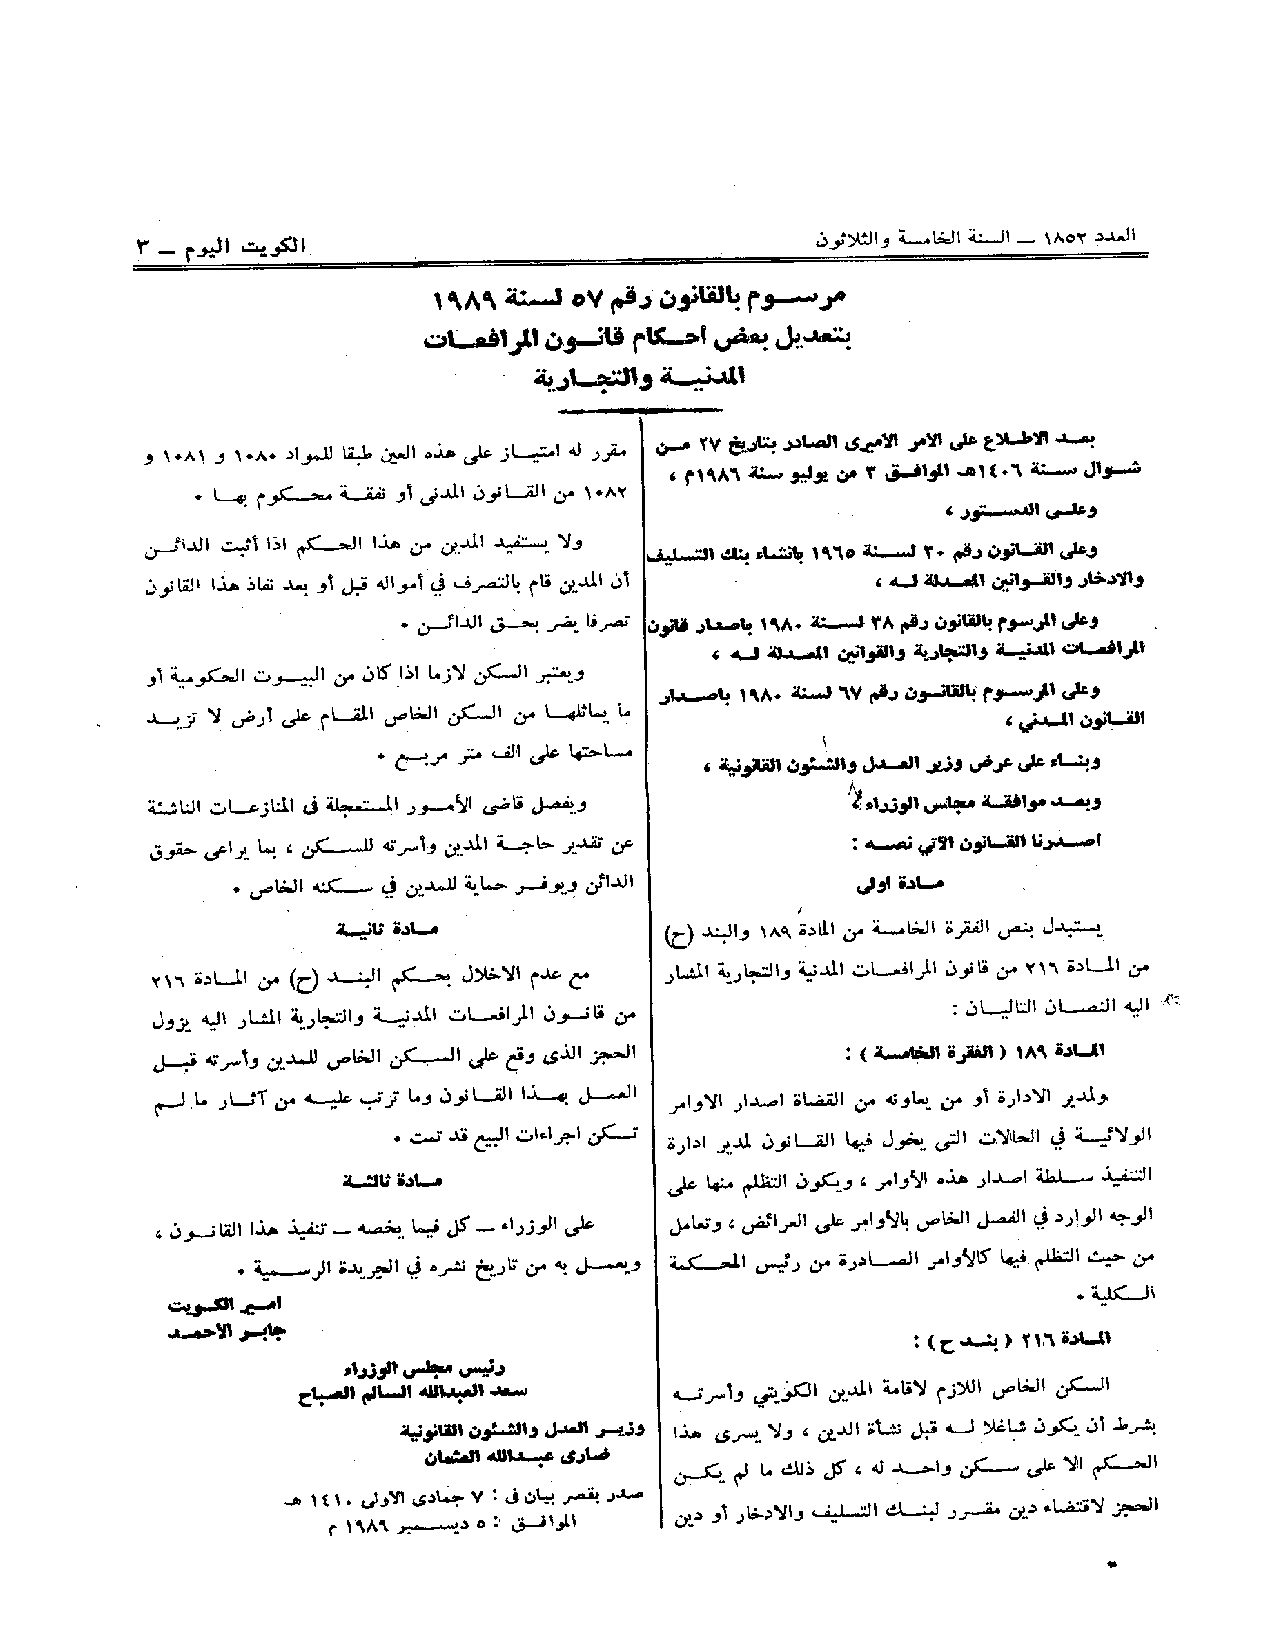 العدد ١٨٥٢ ــ السنة الخامسة والثلاثون
الكويت اليوم ــ ٣
مرسوم بالقانون رقم ٥٧ لسنة ١٩٨٩
بتعديل بعض أحكام قانون المرافعات
المدنية والتجارية
بعد الاطلاع على الامر الاميرى الصادر بتاريخ ٢٧ من
شوال سنة ١٤٠٦هـ الموافق ٣ من يوليو سنة ١٩٨٦م ،
وعلى الدستور ،
وعلى القانون رقم ٣٠ لسنة ١٩٦٥ بانشاء بنك التسليف
والادخار والقوانين المعدلة له ،
وعلى المرسوم بالقانون رقم ٣٨ لسنة ١٩٨٠ باصدار قانون
المرافعات المدنية والتجارية والقوانين المعدلة له ،
وعلى المرسوم بالقانون رقم ٦٧ لسنة ١٩٨٠ باصدار
القانون المدني ،
وبناء على عرض وزير العدل والشئون القانونية ،
وبعد موافقة مجلس الوزراء ،
اصدرنا القانون الآتي نصه :
مادة اولى
يستبدل بنص الفقرة الخامسة من المادة ١٨٩ والبند (ح)
من المادة ٢١٦ من قانون المرافعات المدنية والتجارية المشار
اليه النصان التاليان :
المادة ١٨٩ ( الفقرة الخامسة ) :
ولمدير الادارة أو من يعاونه من القضاة اصدار الاوامر
الولائية في الحالات التى يخول فيها القانون لمدير ادارة
التنفيذ سلطة اصدار هذه الأوامر ، ويكون التظلم منها على
الوجه الوارد في الفصل الخاص بالأوامر على العرائض ، وتعامل
من حيث التظلم فيها كالأوامر الصادرة من رئيس المحكمة
الكلية .
المادة ٢١٦ ( بند ح ) :
السكن الخاص اللازم لاقامة المدين الكويتي وأسرته
بشرط أن يكون شاغلا له قبل نشأة الدين ، ولا يسرى هذا
الحكم الا على سكن واحد له ، كل ذلك ما لم يكن
الحجز لاقتضاء دين مقرر لبنك التسليف والادخار أو دين
مقرر له امتياز على هذه العين طبقا للمواد ١٠٨٠ و ١٠٨١ و
١٠٨٢ من القانون المدنى أو نفقة محكوم بها .
ولا يستفيد المدين من هذا الحكم اذا أثبت الدائن
أن المدين قام بالتصرف في أمواله قبل أو بعد نفاذ هذا القانون
تصرفا يضر بحق الدائن .
ويعتبر السكن لازما اذا كان من البيوت الحكومية أو
ما يماثلها من السكن الخاص المقام على أرض لا تزيد
مساحتها على الف متر مربع .
ويفصل قاضى الأمور المستعجلة فى المنازعات الناشئة
عن تقدير حاجة المدين وأسرته للسكن ، بما يراعى حقوق
الدائن ويوفر حماية للمدين في سكنه الخاص .
مادة ثانية
مع عدم الاخلال بحكم البند (ح) من المادة ٢١٦
من قانون المرافعات المدنية والتجارية المشار اليه يزول
الحجز الذى وقع على السكن الخاص للمدين وأسرته قبل
العمل بهذا القانون وما ترتب عليه من آثار ما لم
تكن اجراءات البيع قد تمت .
مادة ثالثة
على الوزراء ــ كل فيما يخصه ــ تنفيذ هذا القانون ،
ويعمل به من تاريخ نشره في الجريدة الرسمية .
امير الكويت
جابر الأحمد
رئيس مجلس الوزراء
سعد العبدالله السالم الصباح
وزير العدل والشئون القانونية
ضارى عبدالله العثمان
صدر بقصر بيان فى : ٧ جمادى الاولى ١٤١٠ هـ
الموافق : ٥ ديسمبر ١٩٨٩ م